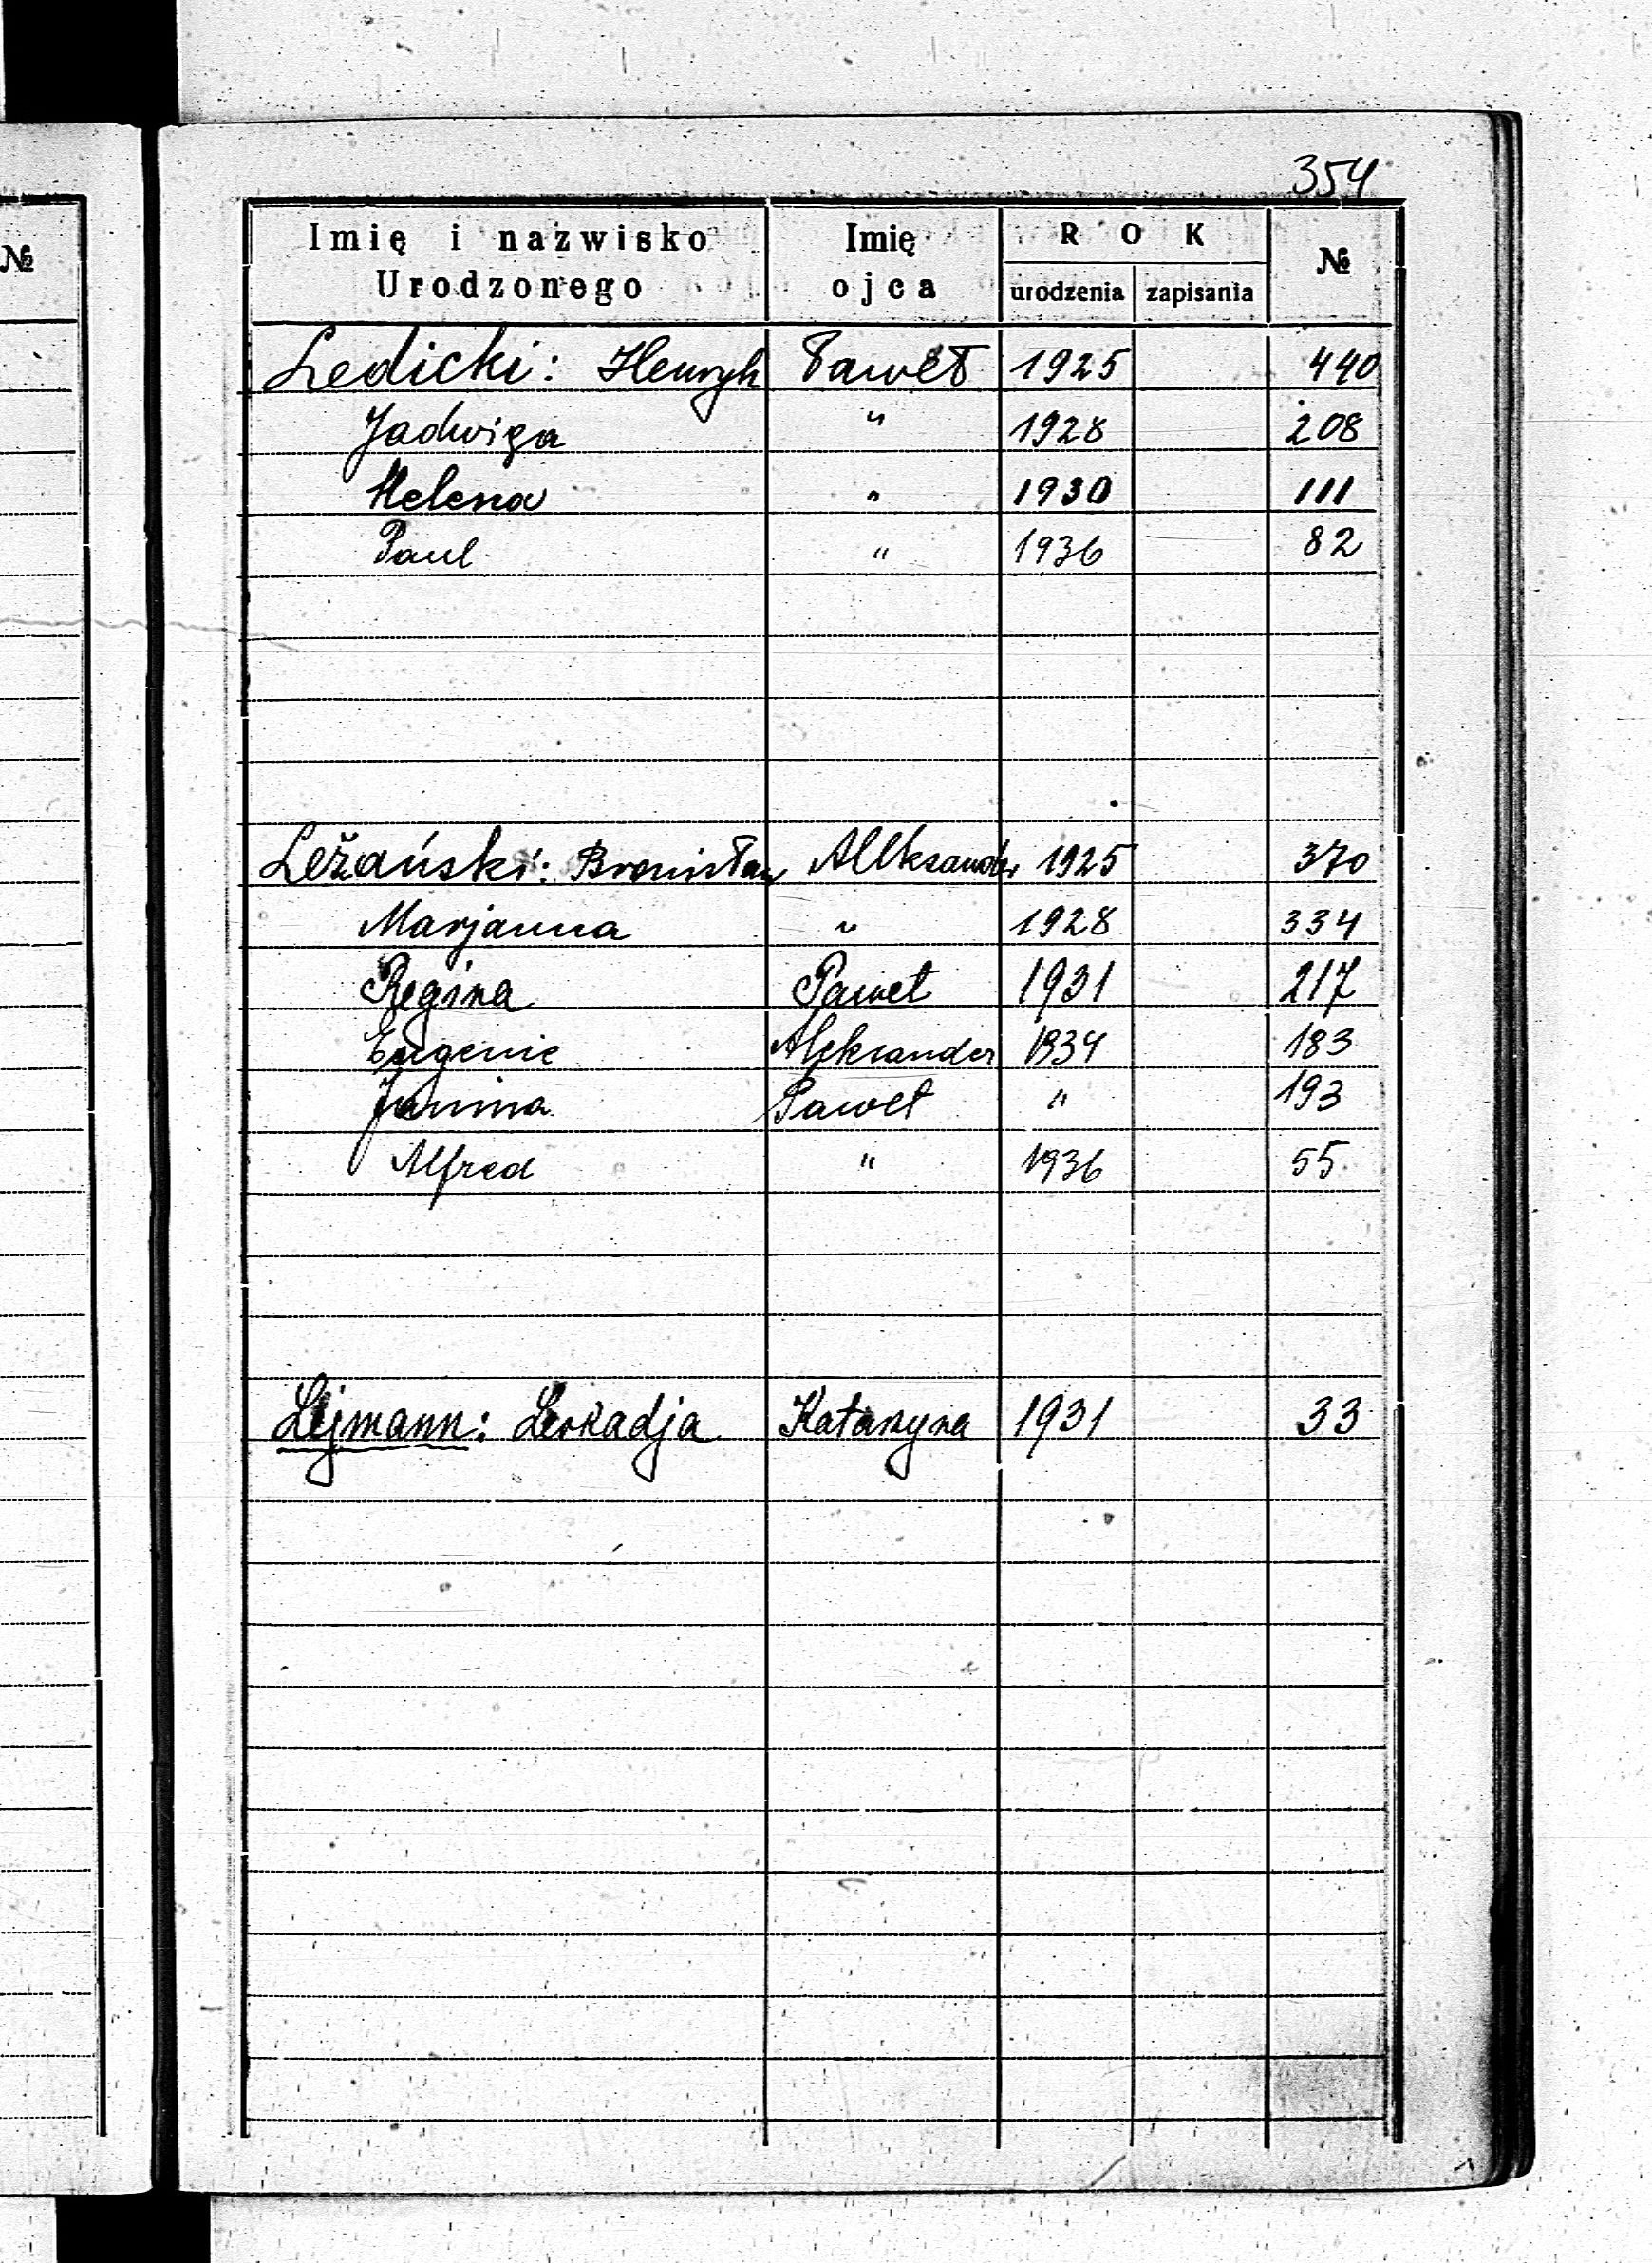 354
№
Imię i nazwisko Urodzonego Imię ojca ROK urodzenia zapisania №
Ledicki: Henryk Paweł 1925 440
Jadwiga " 1928 208
Helena " 1930 111
Paul " 1936 82
Leżański: Bronisław Aleksander 1925 370
Marjanna " 1928 334
Regina Paweł 1931 217
Eugenie Aleksander 1934 183
Janina Paweł " 193
Alfred " 1936 55
Lejmann: Leokadja Katarzyna 1931 33